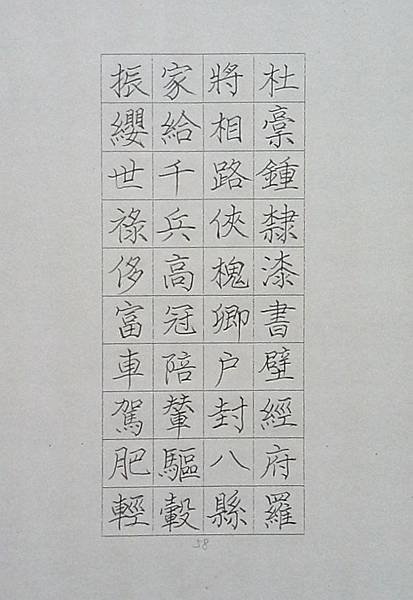 杜稾鍾隸漆書壁經府羅
將相路俠槐卿户封八縣
家給千兵高冠陪輦驅轂
振纓世祿侈富車駕肥輕
58